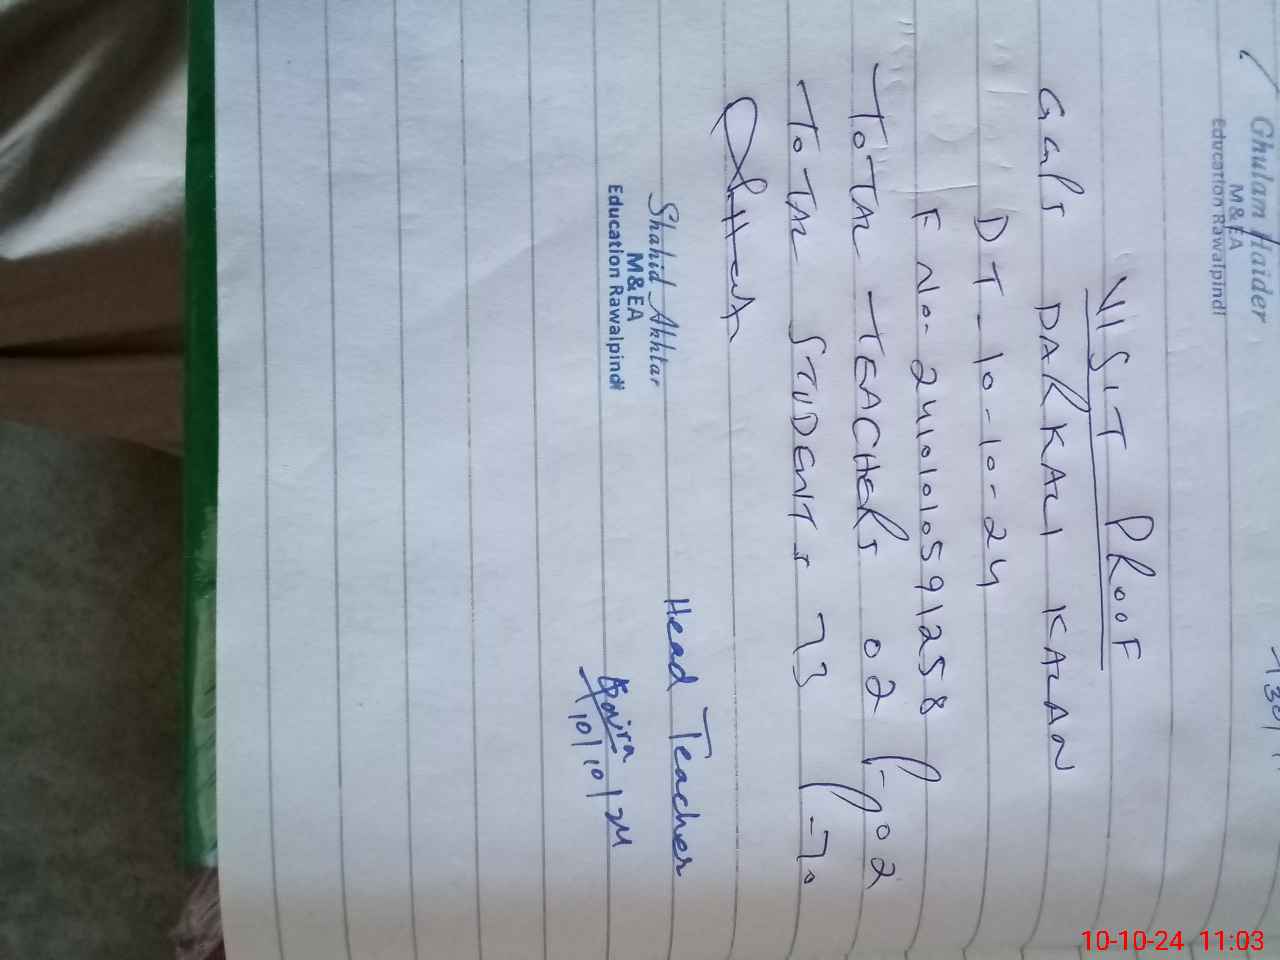 Ghulam Haider
M&EA
Education Rawalpindi
VISIT PROOF
GGPS DARKALI KALAN
DT-10-10-24
F No- 24101010591258
TOTAL TEACHERS 02 P-02
TOTAL STUDENTS 73 P-70
Shahid Akhtar
M&EA
Education Rawalpindi
Head Teacher
10/10/24
10-10-24 11:03